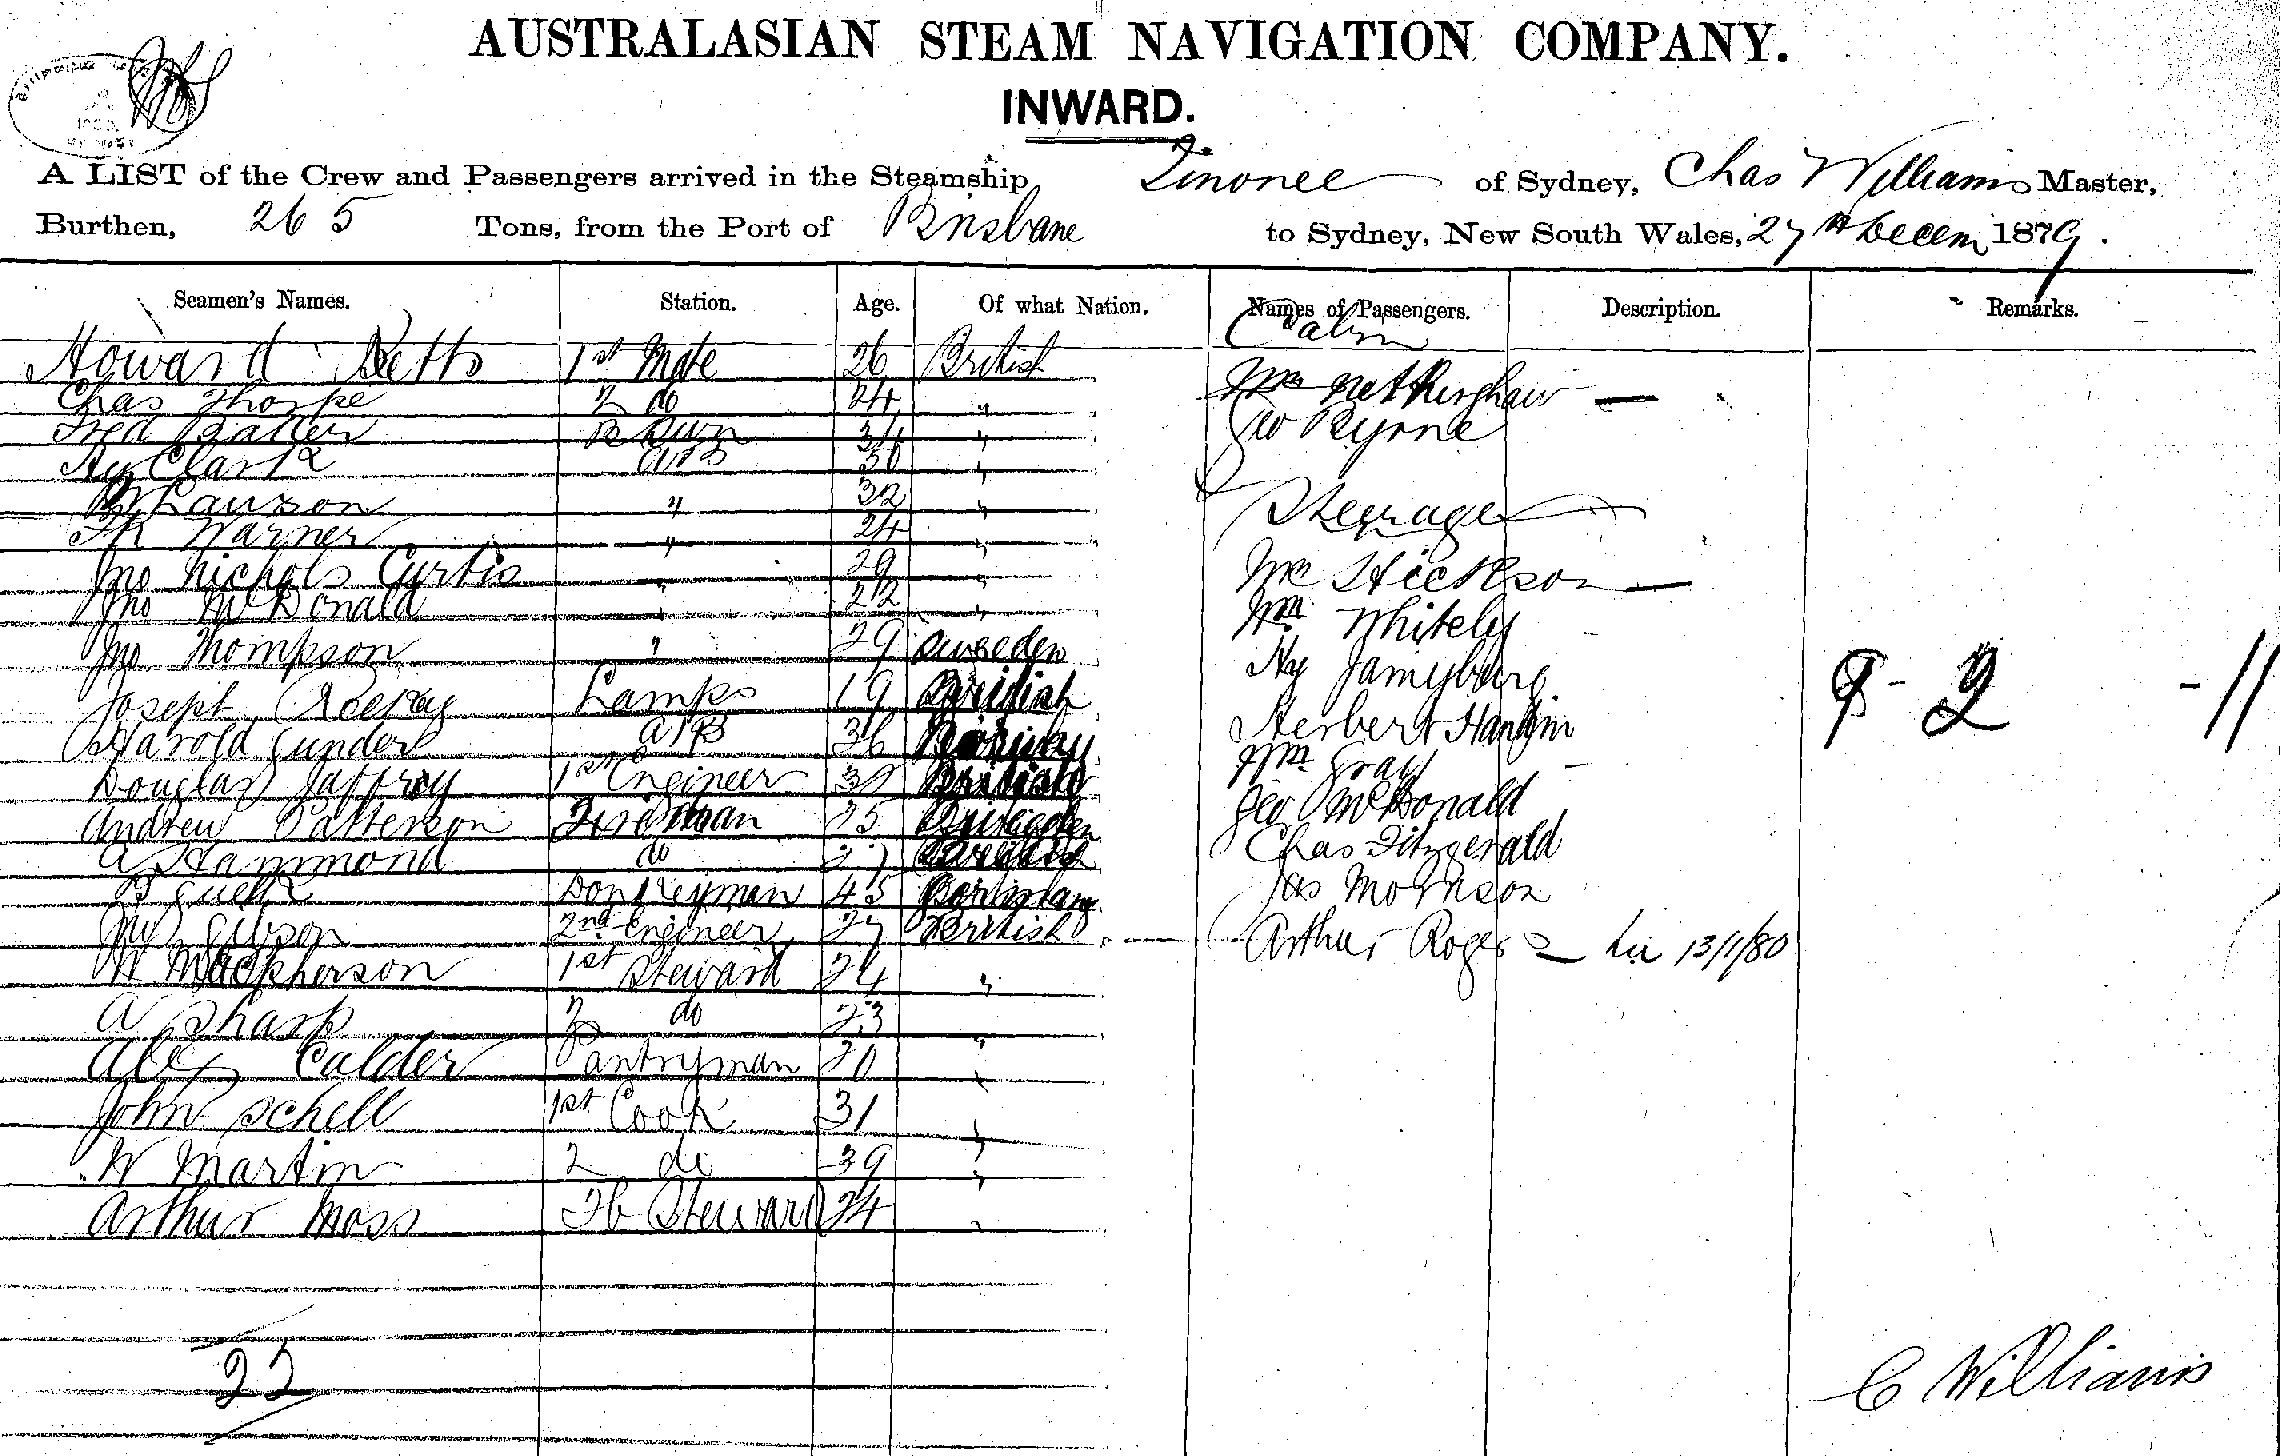 AUSTRALASIAN STEAM NAVIGATION COMPANY.
INWARD.
A LIST of the Crew and Passengers arrived in the Steamship Tinonee of Sydney, Chas Williams Master,
Burthen, 265 Tons, from the Port of Brisbane to Sydney, New South Wales, 27th Decem 1879.
Seamen's Names. Station. Age. Of what Nation. Names of Passengers. Description. Remarks.
Howard Betts 1st Mate 26 British
Chas Thorpe 2 do 24 "
Fred 34 "
Hy Clark AB 30 "
Lawson " 32 "
Warner " 24 "
Jno Nichols Curtis " 29 "
Jno McDonald " 22 "
Jno Thompson " 29 Sweeden
Joseph Lamps 19 British
Harold Gunder AB 36
Douglas Jaffray 1st Engineer British
Andrew Patterson Fireman 25 Sweeden
A Hammond do 27 British
Donkeyman 45
Gibson 2nd Engineer 27 British
W Macpherson 1st Steward 24 "
A Sharp 2 do 23 "
Alex Calder Pantryman 20 "
John Schell 1st Cook 31 "
W Martin 2 do 39 "
Arthur Moss Steward 24 "
22
Cabin
Netherghaw
Geo Byrne
Steerage
Mr Hickson
Wm Whitely
Hy Jamyburg
Herbert
Wm Gray
Geo McDonald
Chas Fitzgerald
Jas Morrison
Arthur Rogers 13/1/80
9 - 2 - 11
C Williams